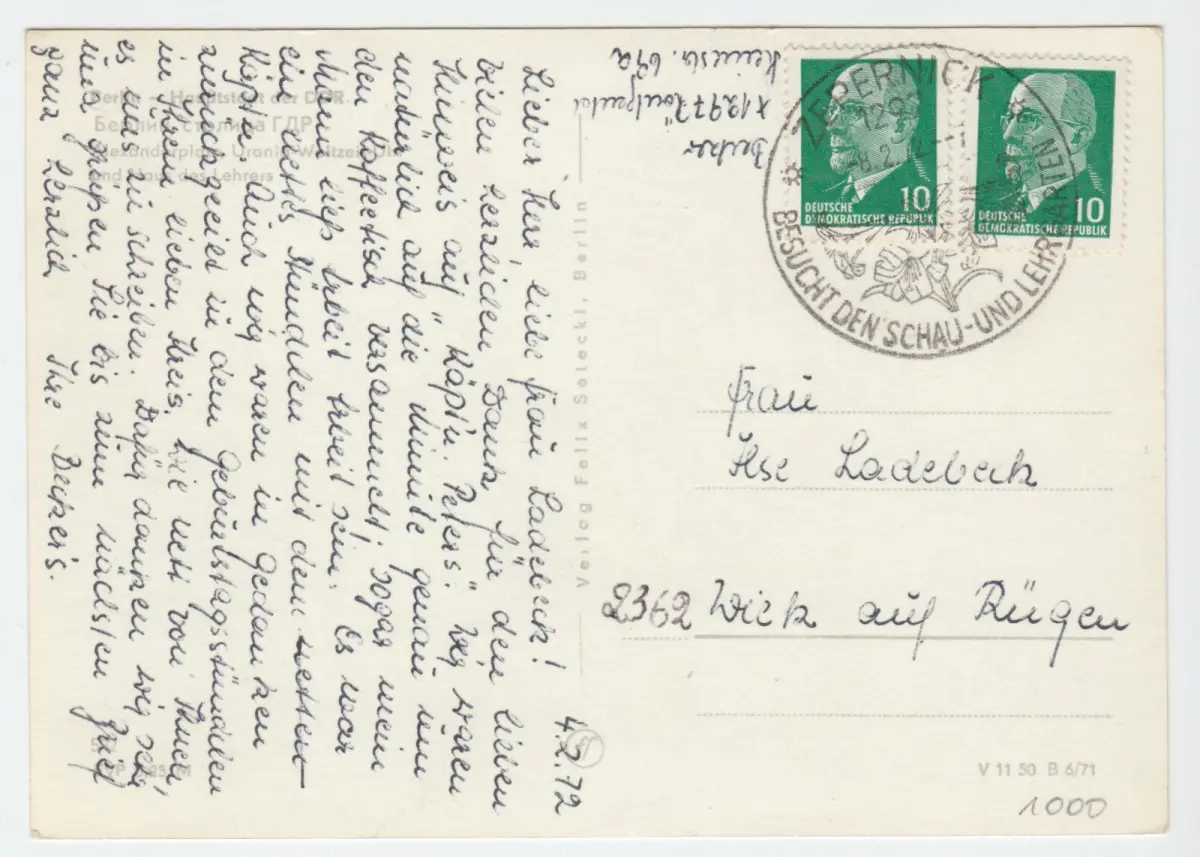 4.2.72
Lieber Herr, liebe Frau Ladebeck!
Vielen herzlichen Dank, für den lieben
Hinweis auf "Käpt'n. Peters." Wir waren
natürlich auf die Minute genau um
den Kaffeetisch versammelt; sogar mein
Mann ließ Arbeit Arbeit sein. Es war
ein nettes Stündchen mit dem netten
Käptn. Auch wir waren in Gedanken
zurückgeeilt in dem Geburtstagsstündchen
in Ihrem lieben Kreis. Wie nett von Ihnen,
es uns zu schreiben. Dafür danken wir sehr
und grüßen Sie bis zum nächsten Brief
ganz herzlich Ihre
Berlin – Hauptstadt der DDR
Берлин – столица ГДР
Alexanderplatz, Urania-Weltzeituhr
und Haus des Lehrers
Verlag Felix Setecki, Berlin
ZEPERNICK
BESUCHT DEN SCHAU- UND LEHRGARTEN
10
DEUTSCHE
DEMOKRATISCHE REPUBLIK
10
DEUTSCHE
DEMOKRATISCHE REPUBLIK
Frau
Ilse Ladebeck
2362 Wiek auf Rügen
V 11 50 B 6/71
1000